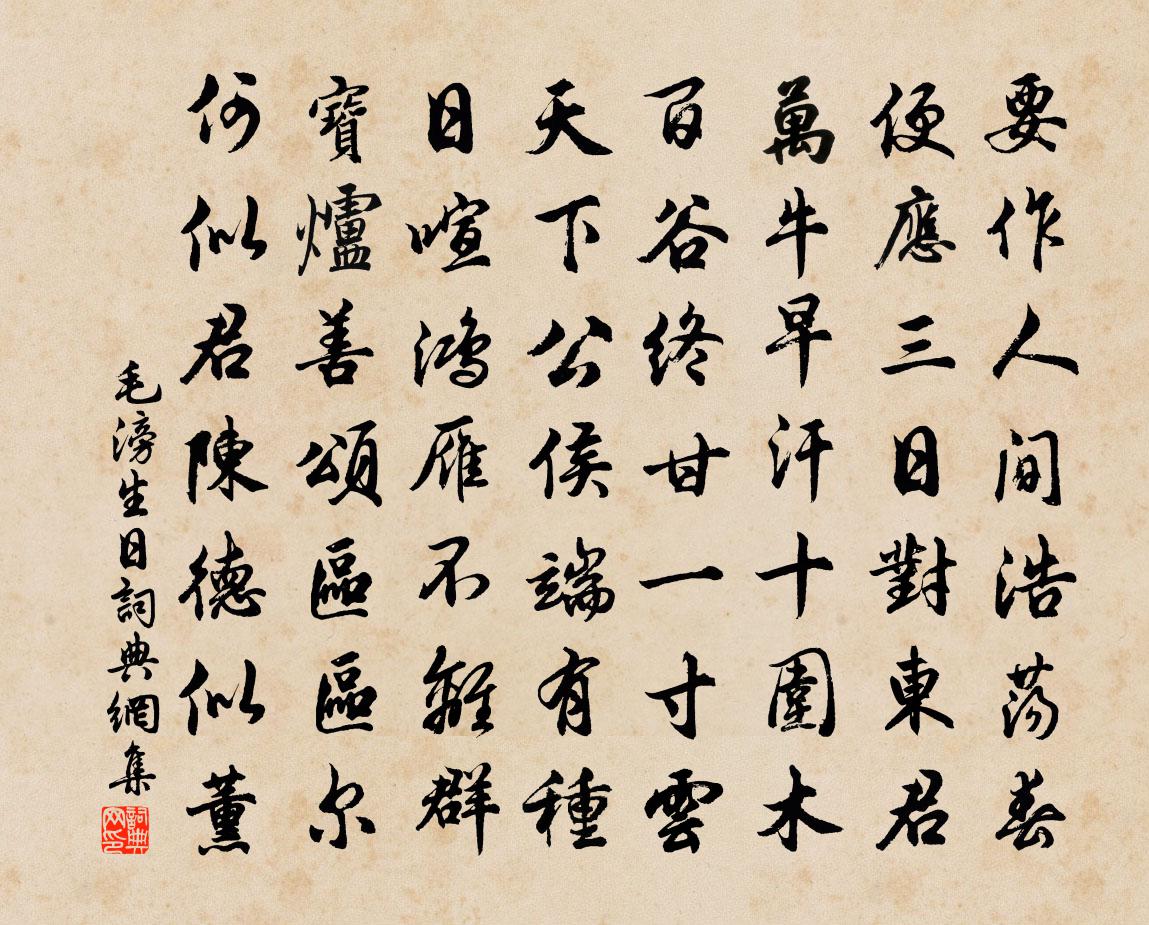 要作人間浩蕩春
便應三日對東君
萬牛早汗十圍木
百谷終甘一寸雲
天下公侯端有種
日喧鴻雁不離群
寶爐善頌區區尔
何似君陳德似薰
毛滂生日詞典網集
詞典网印